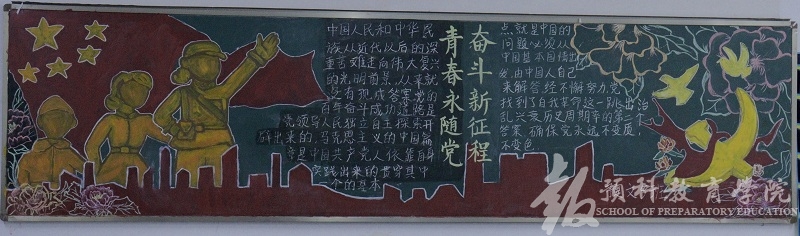 中国人民和中华民
族从近代以后的深
重苦难走向伟大复兴
的光明前景，从来就
没有现成答案。党的
百年奋斗成功道路是
党领导人民独立自主探索开
辟出来的，马克思主义的中国篇
章是中国共产党人依靠自身
实践出来的贯穿其中
一个的基本
奋斗新征程
青春永随党
点就是中国的
问题必须从
中国基本国情出
发，由中国人自己
来解答经不懈努力，党
找到了自我革命这一跳出治
乱兴衰历史周期率的第二个
答案，确保党永远不变质，
不变色
報
預科教育学院
SCHOOL OF PREPARATORY EDUCATION